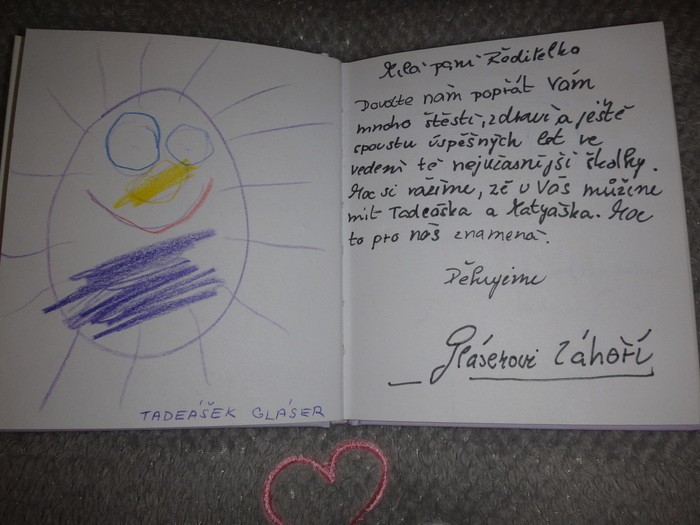 TADEÁŠEK GLÁSER
Milá paní Ředitelko
Dovolte nám popřát Vám
mnoho štěstí, zdraví a ještě
spoustu úspěšných let ve
vedení té nejúžasnější školky.
Moc si vážíme, že u Vás můžeme
mít Tadeáška a Matyáška. Moc
to pro nás znamená.
Děkujeme
Gláserovi Záhoří